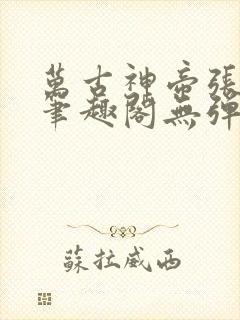 萬古神帝張
筆趣閣無彈
蘇拉威西